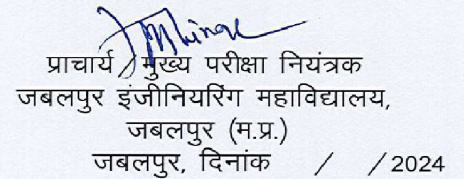 प्राचार्य / मुख्य परीक्षा नियंत्रक
जबलपुर इंजीनियरिंग महाविद्यालय,
जबलपुर (म.प्र.)
जबलपुर, दिनांक / / 2024